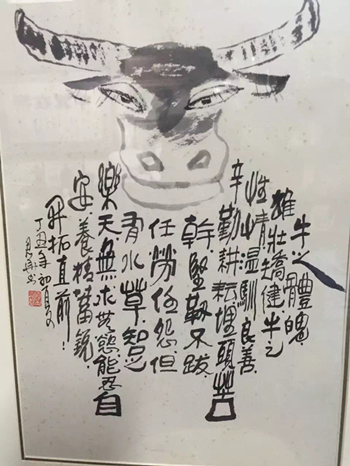 牛之體魄
雄壯矯健牛之
性情溫馴良善
辛勤耕耘埋頭苦
幹堅韌不拔
任勞任怨但
有水草知足
樂天無求無慾能忍自
安養精蓄銳
开拓直前
丁丑年初夏